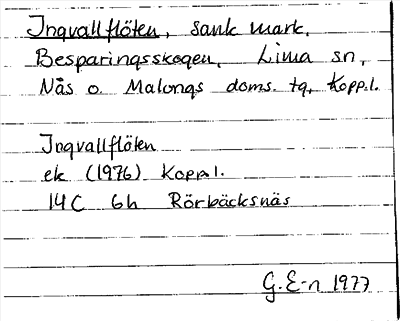 Ingvallflöten, sank mark,
Besparingsskogen, Lima sn,
Nås o. Malungs doms. tg, Kopp.l.
Ingvallflöten
ek (1976) Kopp.l.
14C 6h Rörbäcksnäs
G.E-n 1977